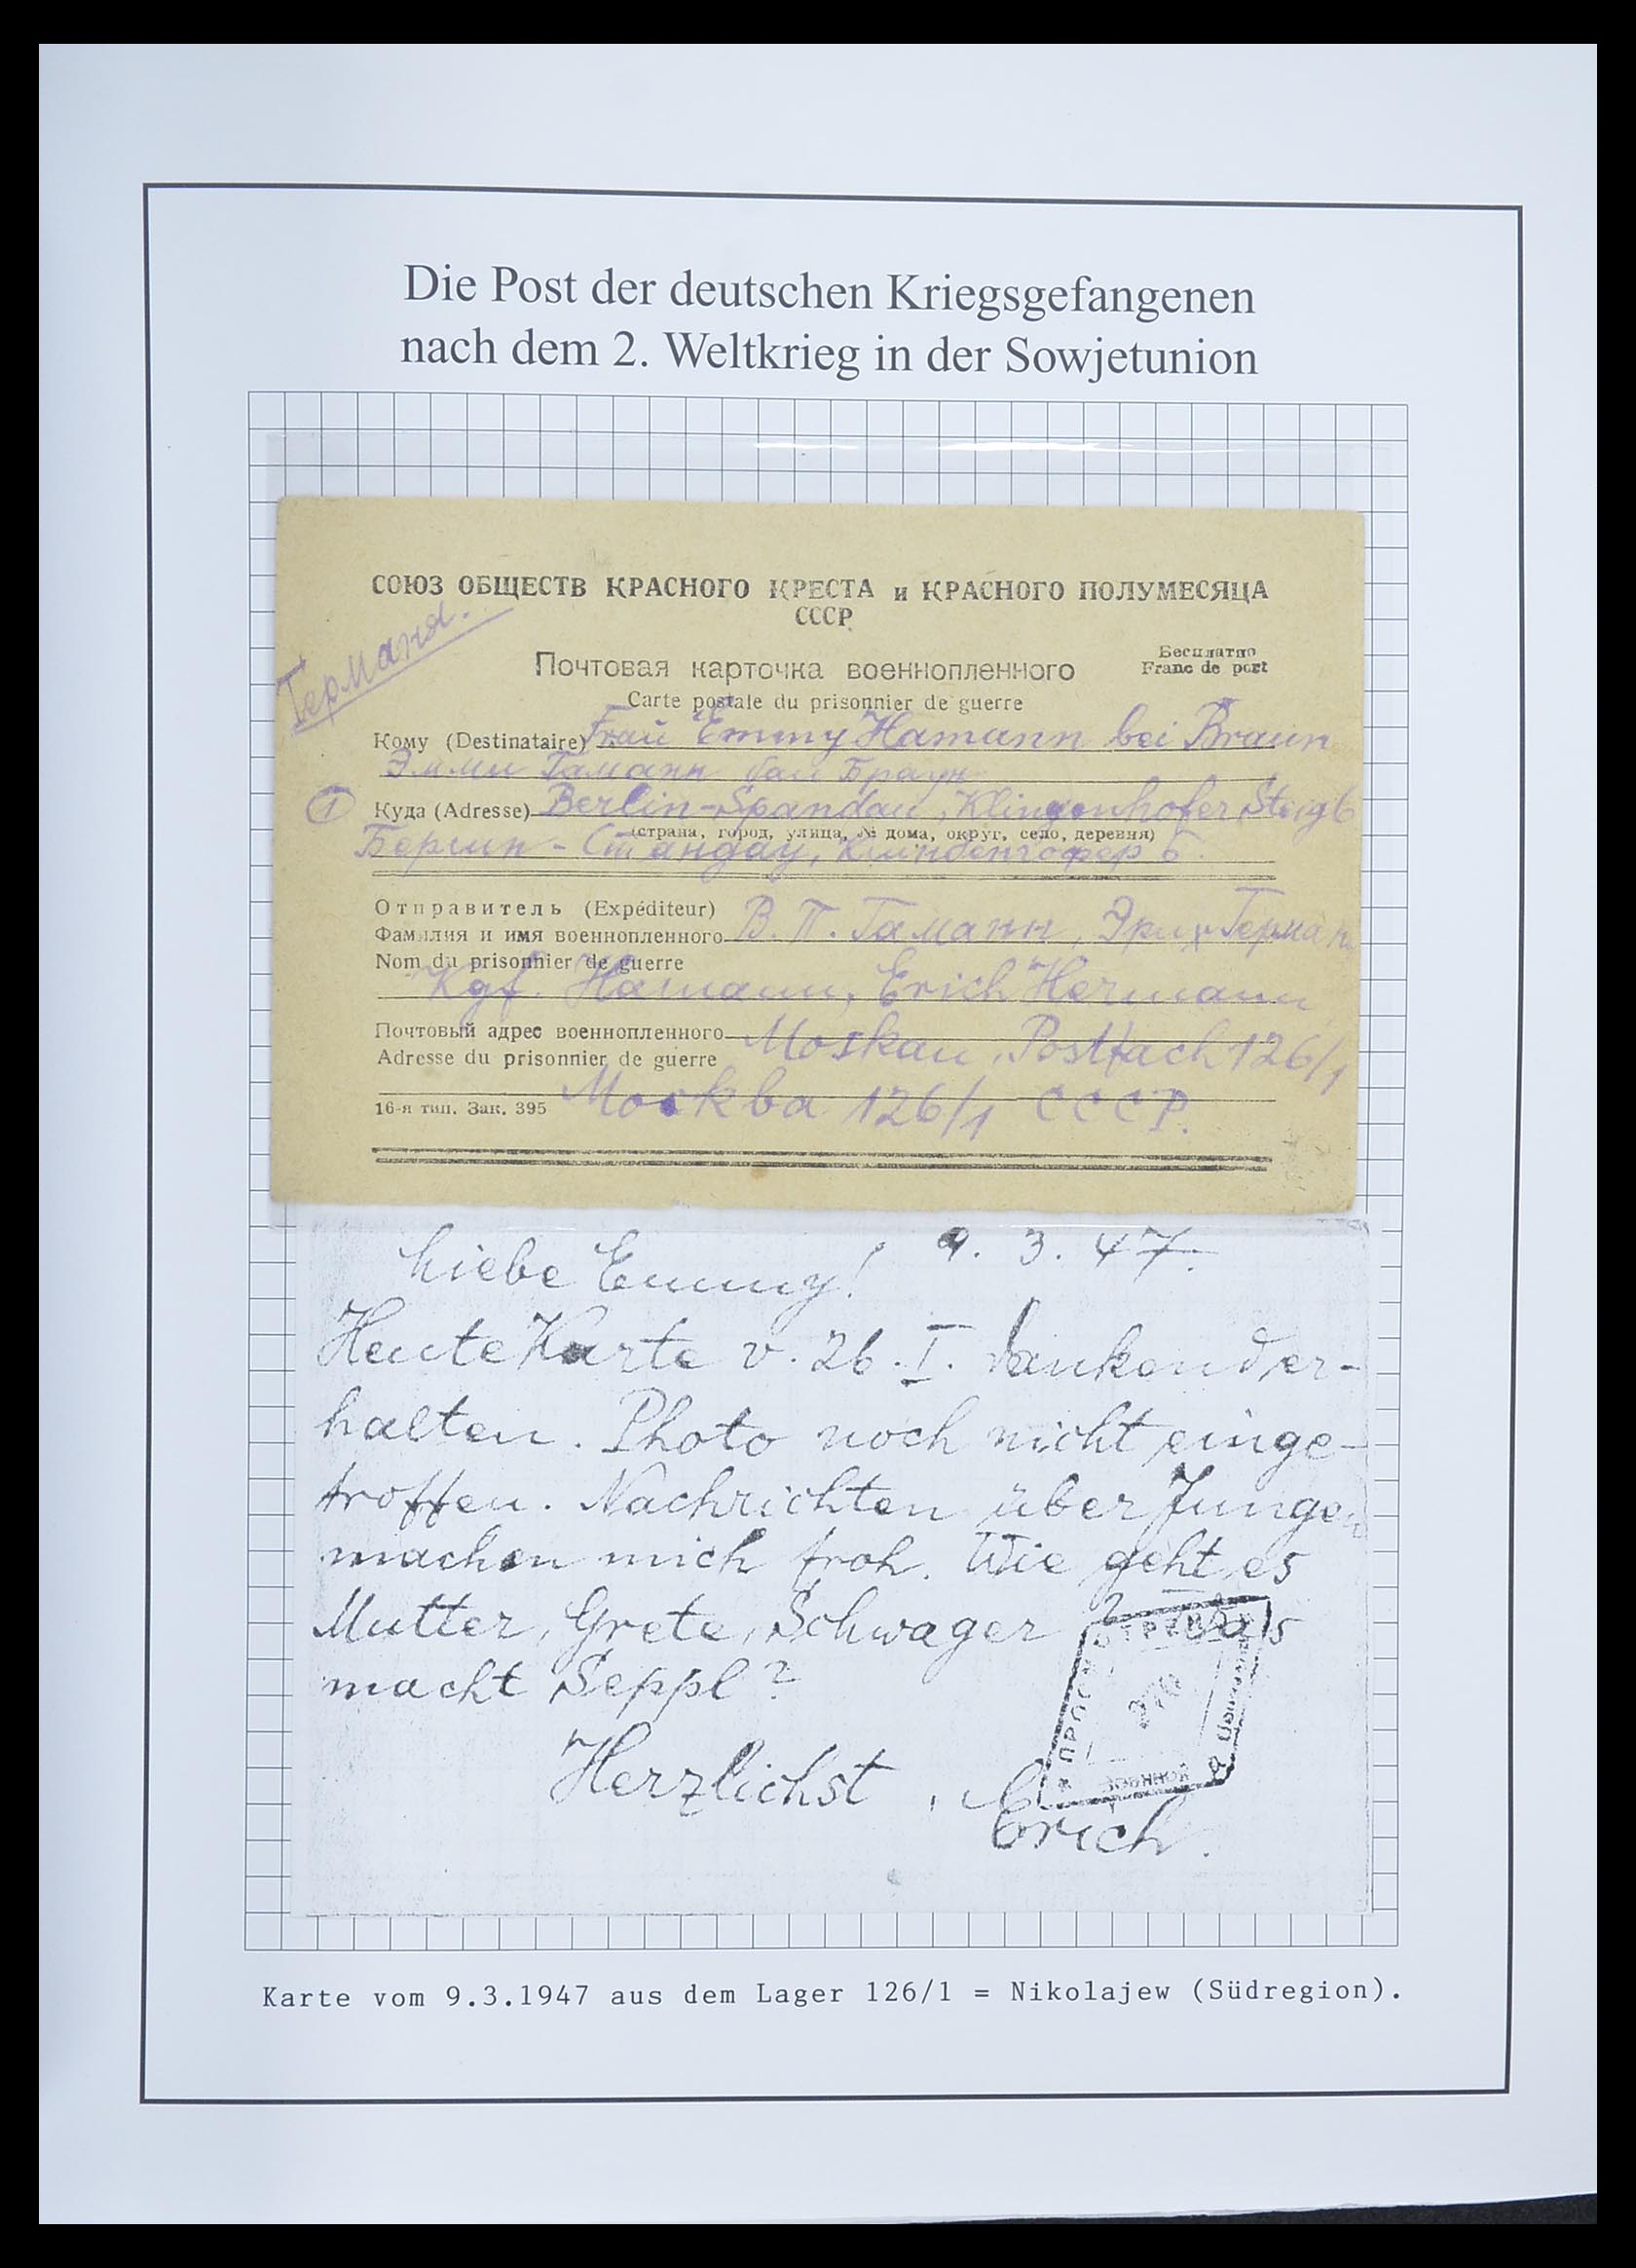 Die Post der deutschen Kriegsgefangenen
nach dem 2. Weltkrieg in der Sowjetunion
СОЮЗ ОБЩЕСТВ КРАСНОГО КРЕСТА и КРАСНОГО ПОЛУМЕСЯЦА
СССР
Германя.
Почтовая карточка военнопленного
Бесплатно
Franc de port
Carte postale du prisonnier de guerre
Кому (Destinataire) Frau Emmy Hamann bei Braun
Эмми Гаманн бай Браун
1 Куда (Adresse) Berlin-Spandau, Klingenhofer Steig 6
(страна, город, улица, № дома, округ, село, деревня)
Берлин-Шпандау,
Отправитель (Expéditeur)
Фамилия и имя военнопленного В. П. Гаманн, Эрих Герман
Nom du prisonnier de guerre
Kgf. Hamann, Erich Hermann
Почтовый адрес военнопленного Moskau, Postfach 126/1
Adresse du prisonnier de guerre
16-я тип. Зак. 395 Москва 126/1 СССР.
9. 3. 47.
Liebe Emmy!
Heute Karte v. 26. I. dankend er-
halten. Photo noch nicht einge-
troffen. Nachrichten über Jungen
machen mich froh. Wie geht es
Mutter, Grete, Schwager? Was
macht Seppl?
Herzlichst, Erich.
Karte vom 9.3.1947 aus dem Lager 126/1 = Nikolajew (Südregion).